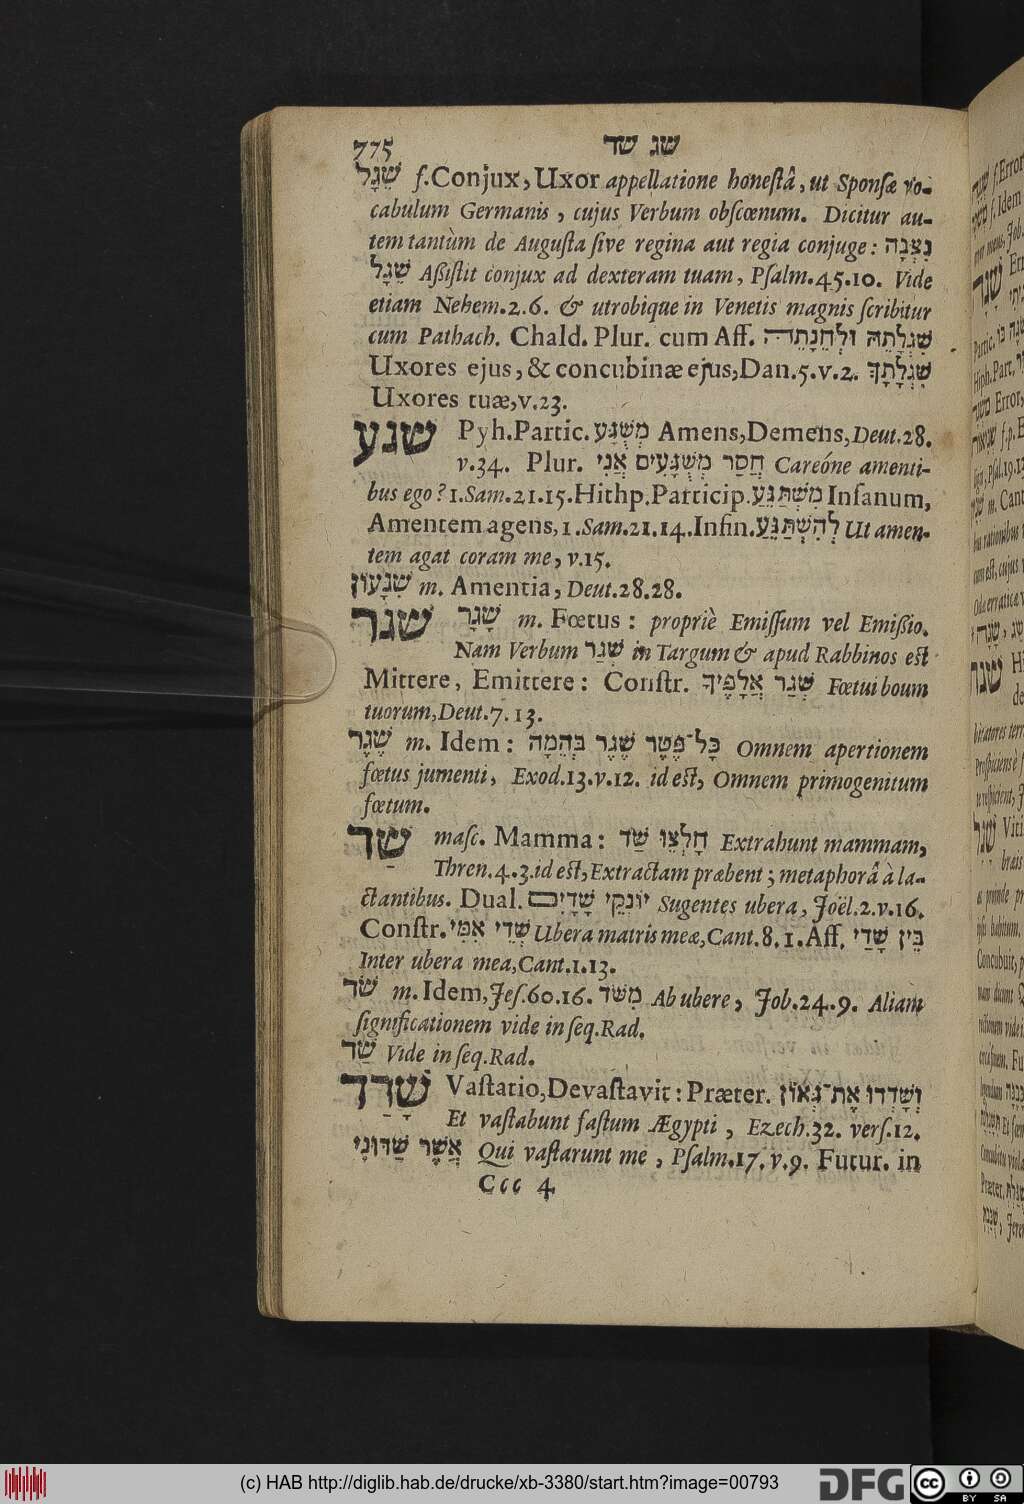 775 שג שד
שֵׁגָל f. Conjux, Uxor appellatione honestâ, ut Sponsæ vo-
cabulum Germanis, cujus Verbum obscœnum. Dicitur au-
tem tantùm de Augusta sive regina aut regia conjuge: נִצְּבָה
שֵׁגָל Aßistit conjux ad dexteram tuam, Psalm. 45. 10. Vide
etiam Nehem. 2. 6. & utrobique in Venetis magnis scribitur
cum Pathach. Chald. Plur. cum Aff. שֵׁגְלָתֵהּ וּלְחֵנָתֵהּ
Uxores ejus, & concubinæ ejus, Dan. 5. v. 2. שֵׁגְלָתָךְ
Uxores tuæ, v. 23.
שגע Pyh. Partic. מְשֻׁגָּע Amens, Demens, Deut. 28.
v. 34. Plur. חֲסַר מְשֻׁגָּעִים אֲנִי Careóne amenti-
bus ego? 1. Sam. 21. 15. Hithp. Particip. מִשְׁתַּגֵּעַ Insanum,
Amentem agens, 1. Sam. 21. 14. Infin. לְהִשְׁתַּגֵּעַ Ut amen-
tem agat coram me, v. 15.
שִׁגָּעוֹן m. Amentia, Deut. 28. 28.
שגר שָׁגָר m. Fœtus: propriè Emissum vel Emißio.
Nam Verbum שִׁגַר in Targum & apud Rabbinos est
Mittere, Emittere: Constr. שְׁגַר אֲלָפֶיךָ Fœtui boum
tuorum, Deut. 7. 13.
שֶׁגֶר m. Idem: כָּל־פֶּטֶר שֶׁגֶר בְּהֵמָה Omnem apertionem
fœtus jumenti, Exod. 13. v. 12. id est, Omnem primogenitum
fœtum.
שַׁד masc. Mamma: חָלְצוּ שַׁד Extrahunt mammam,
Thren. 4. 3. id est, Extractam præbent; metaphorâ à la-
ctantibus. Dual. יוֹנְקֵי שָׁדָיִם Sugentes ubera, Joël. 2. v. 16.
Constr. שְׁדֵי אִמִּי Ubera matris meæ, Cant. 8. 1. Aff. בֵּין שָׁדַי
Inter ubera mea, Cant. 1. 13.
שֹׁד m. Idem, Jes. 60. 16. מִשֹּׁד Ab ubere, Job. 24. 9. Aliam
significationem vide in seq. Rad.
שַׁד Vide in seq. Rad.
שָׁדַד Vastatio, Devastavit: Præter. וְשָׁדְדוּ אֶת־גְּאוֹן
Et vastabunt fastum Ægypti, Ezech. 32. vers. 12.
אֲשֶׁר שַׁדּוּנִי Qui vastarunt me, Psalm. 17. v. 9. Futur. in
Ccc 4
(c) HAB http://diglib.hab.de/drucke/xb-3380/start.htm?image=00793
DFG cc BY SA